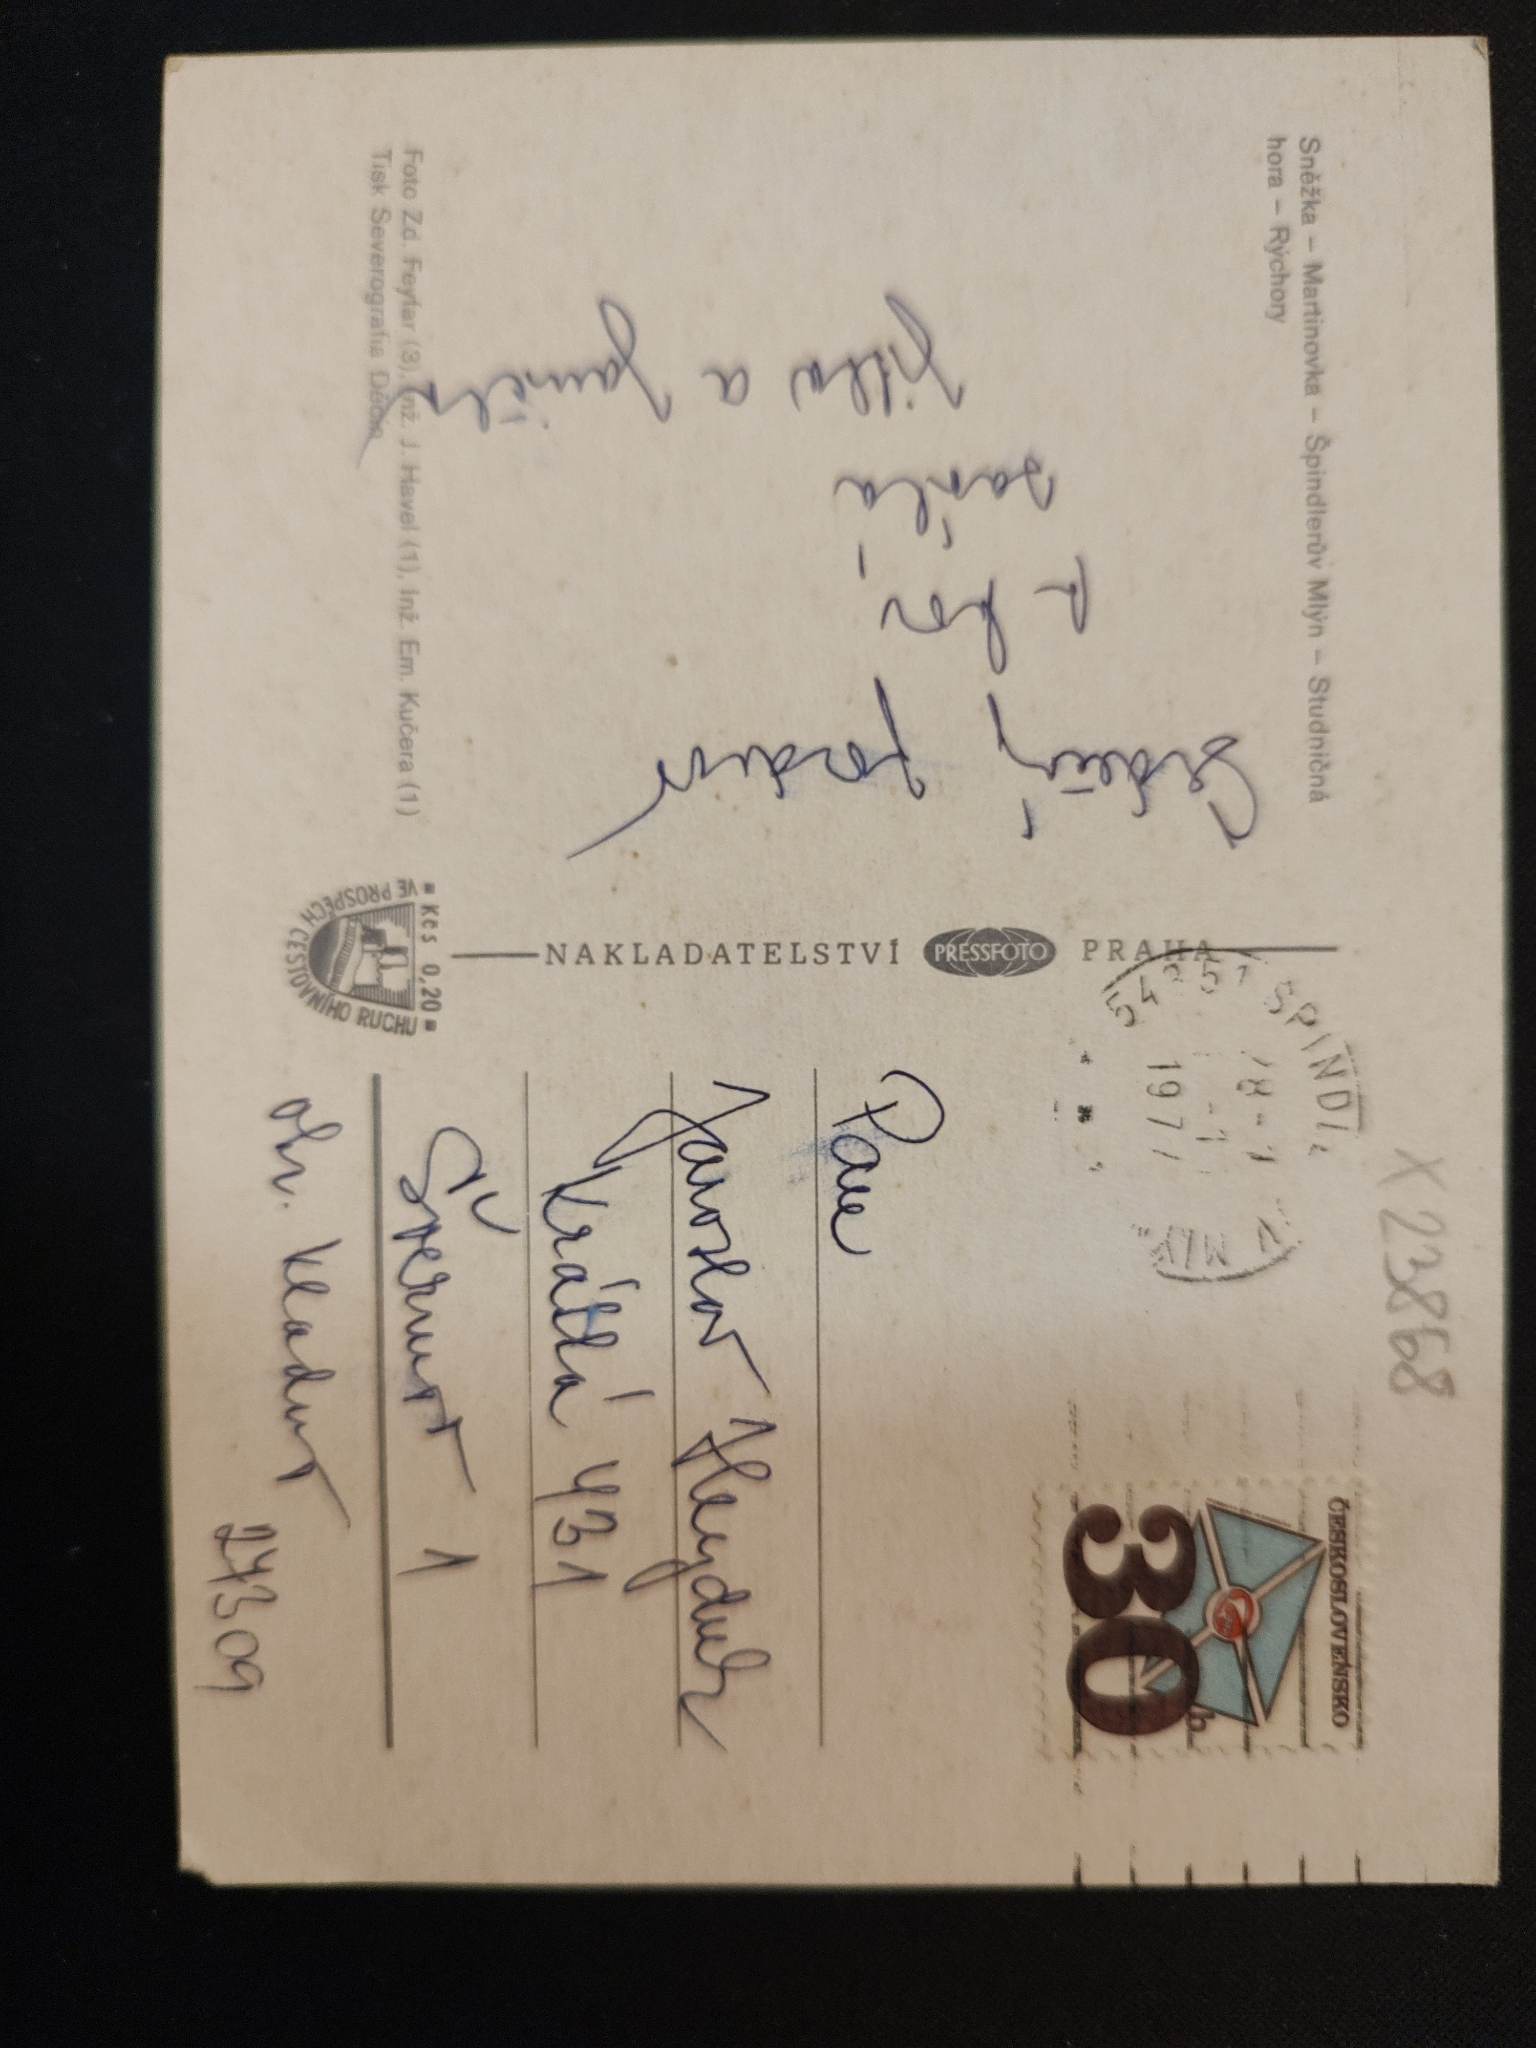 Sněžka – Martinovka – Špindlerův Mlýn – Studničná
hora – Rýchory
Srdečný
pozdrav
z hor
zasílá
Jitka a Jaruška
Foto Zd. Feyfar (3), Inž. J. Havel (1), Inž. Em. Kučera (1)
Tisk Severografia Děčín
NAKLADATELSTVÍ PRESSFOTO PRAHA
Kčs 0,20
VE PROSPĚCH CESTOVNÍHO RUCHU
X 23868
54351 ŠPINDL. MLÝN
1977
ČESKOSLOVENSKO
30 h
Pan
Jaroslav
Krátká 431
Švermov 1
okr. Kladno
27309